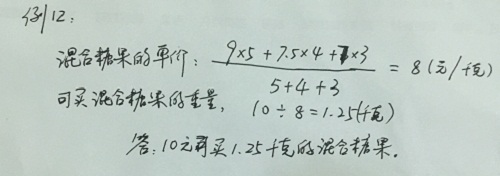 例12:
混合糖果的单价: (9×5+7.5×4+7×3)/(5+4+3) = 8(元/千克)
可买混合糖果的重量, 10÷8=1.25(千克)
答:10元可买1.25千克的混合糖果。